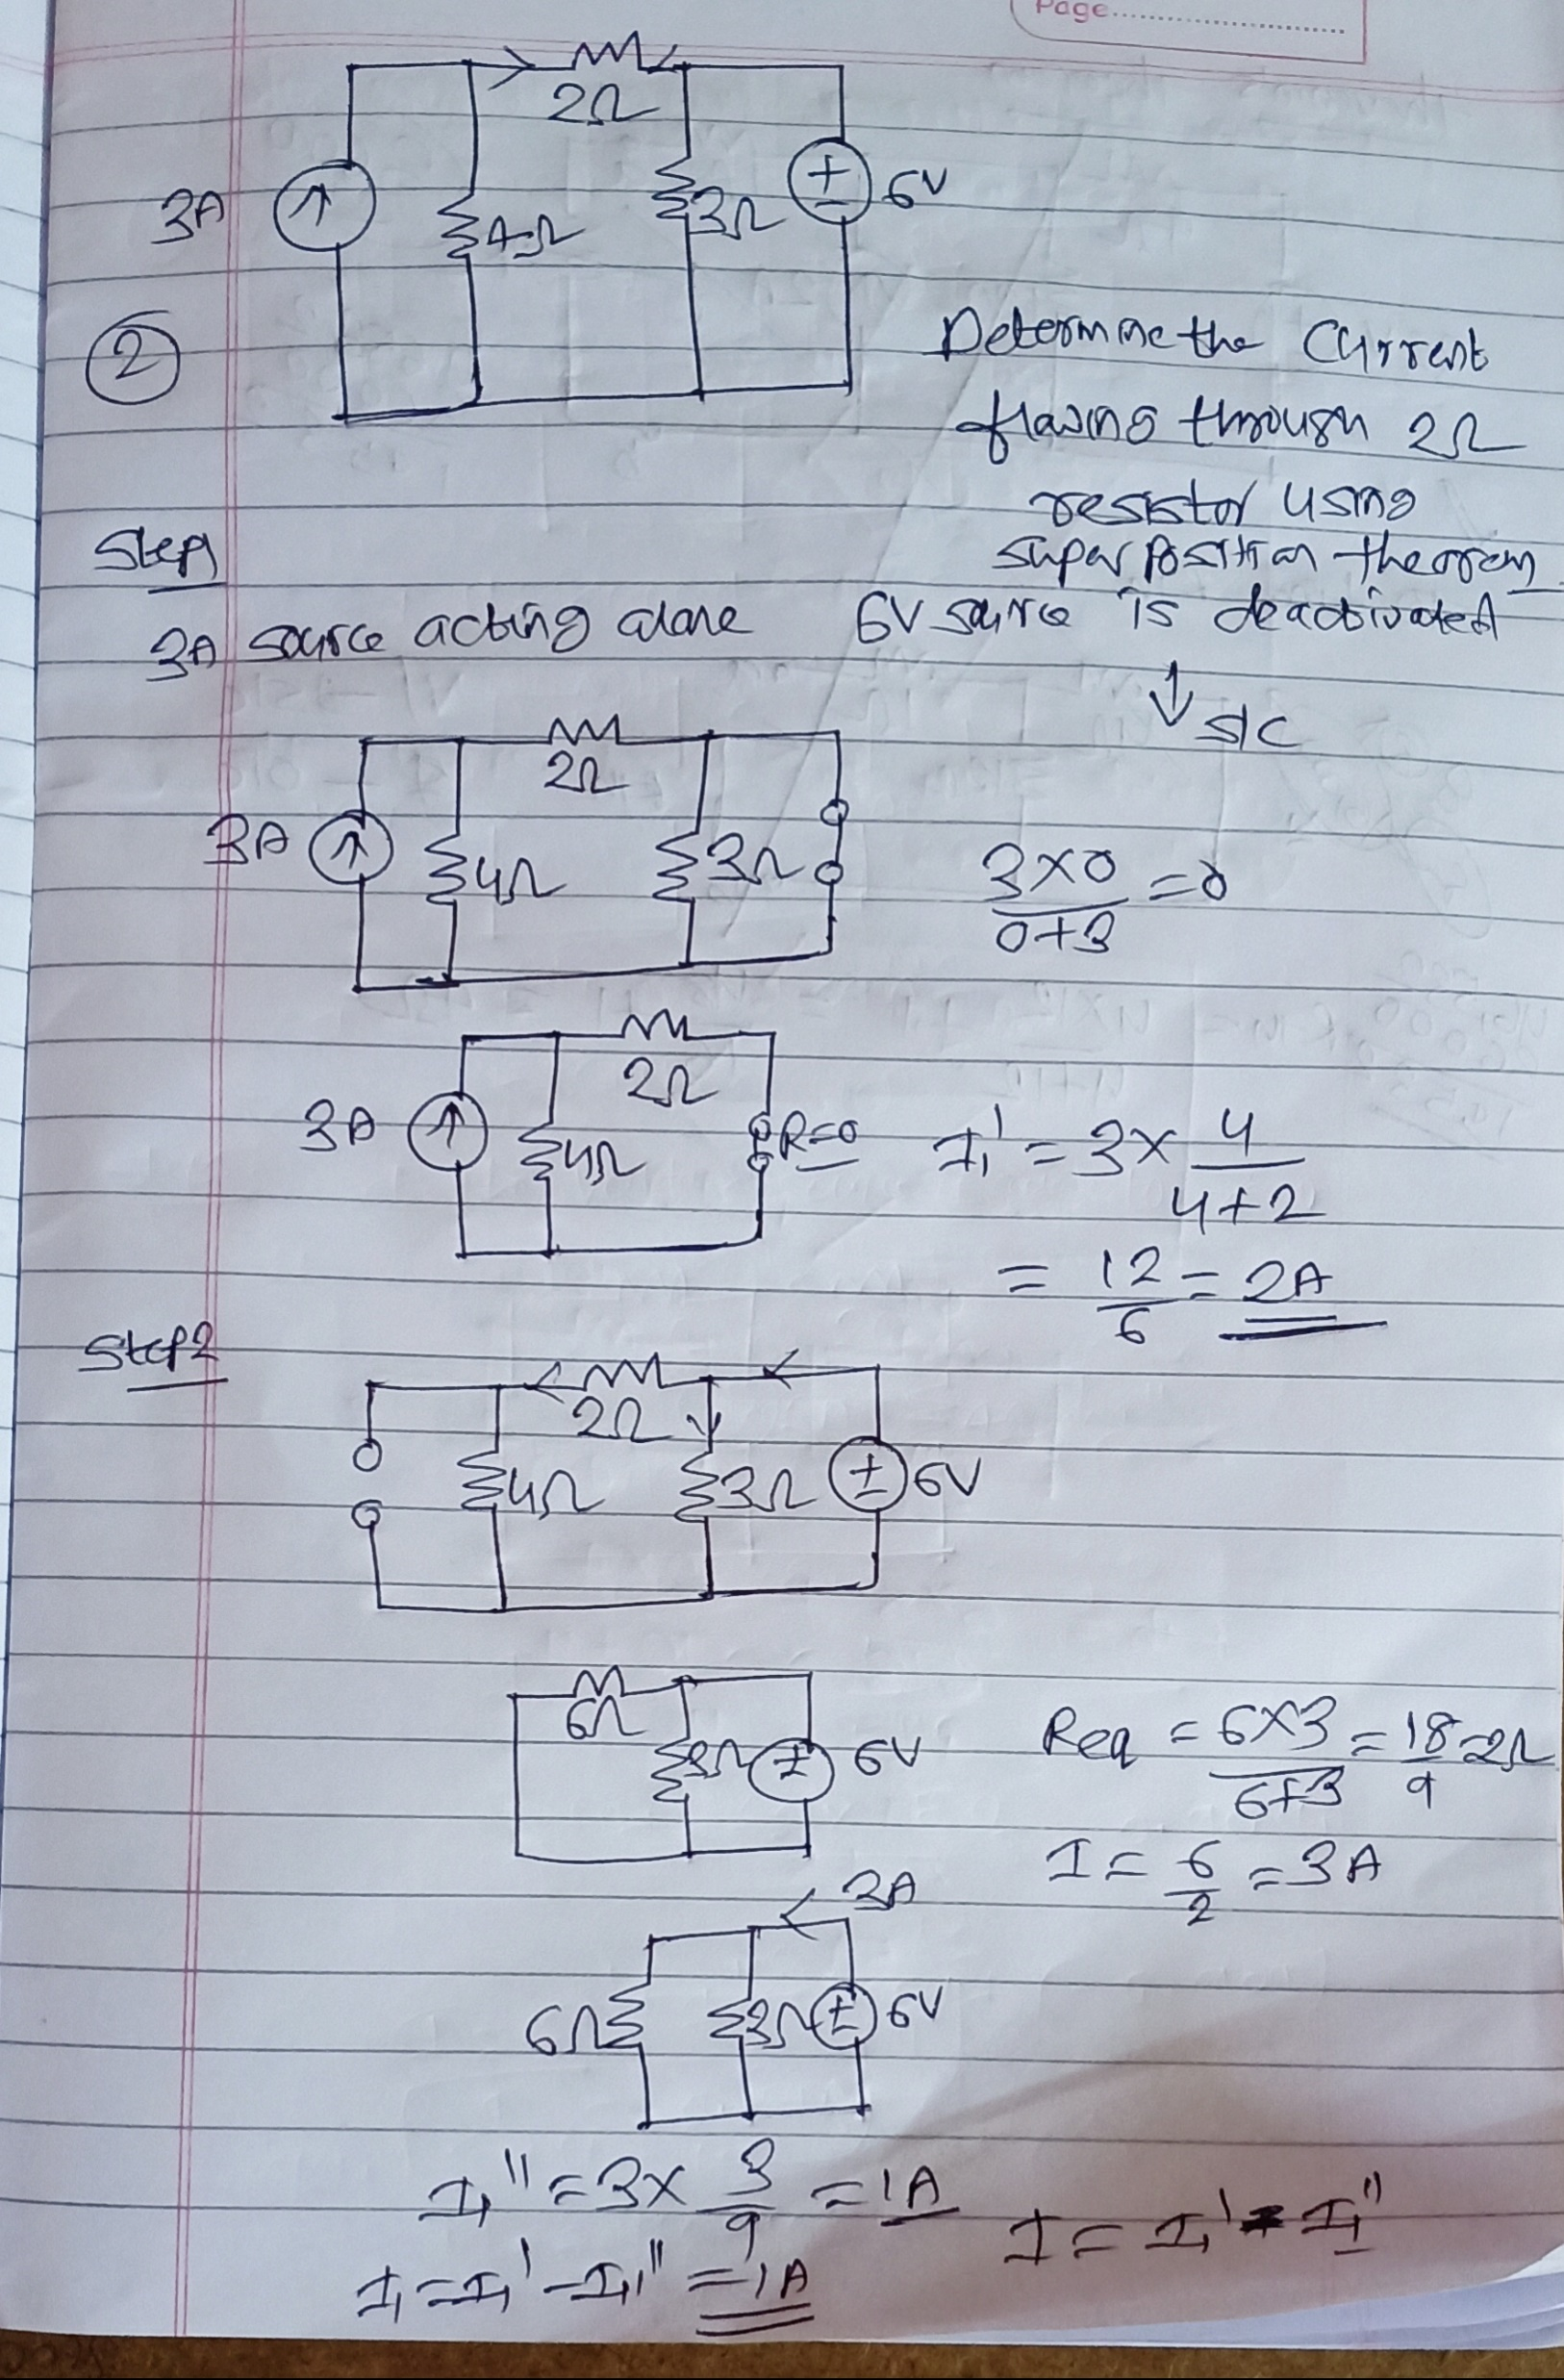 Page
2Ω
3A
4Ω
3Ω
6V
②
Determine the Current
flowing through 2Ω
resistor using
superposition theorem
Step1
3A source acting alone 6V source is deactivated
↓ S/C
2Ω
3A
4Ω
3Ω
3×0/0+3 = 0
2Ω
3A
4Ω
R=0
I₁' = 3 × 4/4+2
= 12/6 = 2A
Step2
2Ω
4Ω
3Ω
6V
6Ω
3Ω
6V
Req = 6×3/6+3 = 18/9 = 2Ω
I = 6/2 = 3A
3A
6Ω
3Ω
6V
I₁'' = 3 × 3/9 = 1A
I = I₁' - I₁''
I₁ = I₁' - I₁'' = 1A